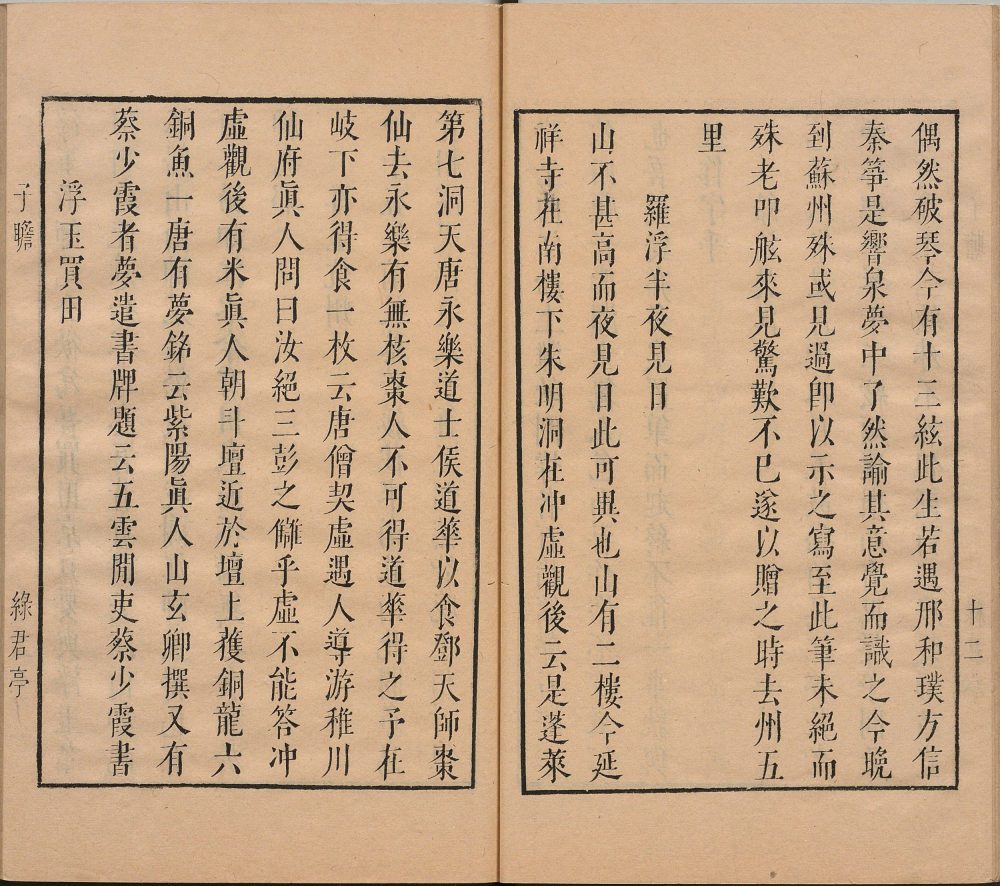 偶然破琴今有十三絃此生若遇邢和璞方信
秦箏是響泉夢中了然諭其意覺而識之今晚
到蘇州殊或見過卽以示之寫至此筆未絕而
殊老叩舷來見驚歎不已遂以贈之時去州五
里
羅浮半夜見日
山不甚高而夜見日此可異也山有二樓今延
祥寺在南樓下朱明洞在冲虛觀後云是蓬萊
十二
第七洞天唐永樂道士侯道華以食鄧天師棗
仙去永樂有無核棗人不可得道華得之予在
岐下亦得食一枚云唐僧契虛遇人導游稚川
仙府眞人問曰汝絕三彭之讎乎虛不能答冲
虛觀後有米眞人朝斗壇近於壇上獲銅龍六
銅魚一唐有夢銘云紫陽眞人山玄卿撰又有
蔡少霞者夢遣書牌題云五雲閒吏蔡少霞書
浮玉買田
子瞻
綠君亭